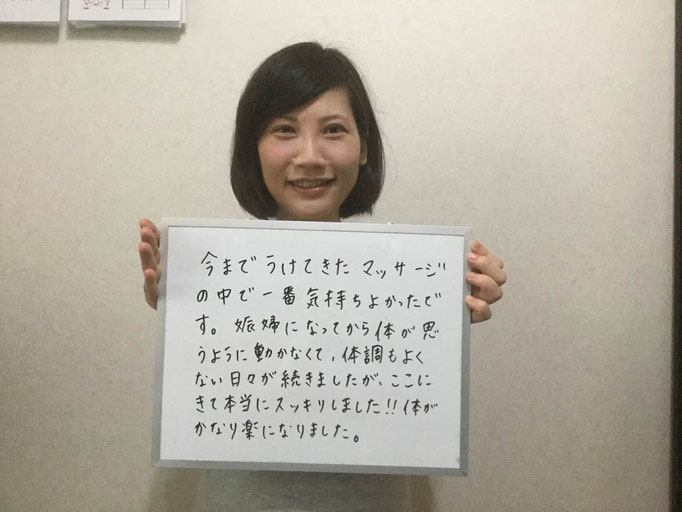 今までうけてきたマッサージ
の中で一番気持ちよかったで
す。妊婦になってから体が思
うように動かなくて、体調もよく
ない日々が続きましたが、ここに
きて本当にスッキリしました!!体が
かなり楽になりました。